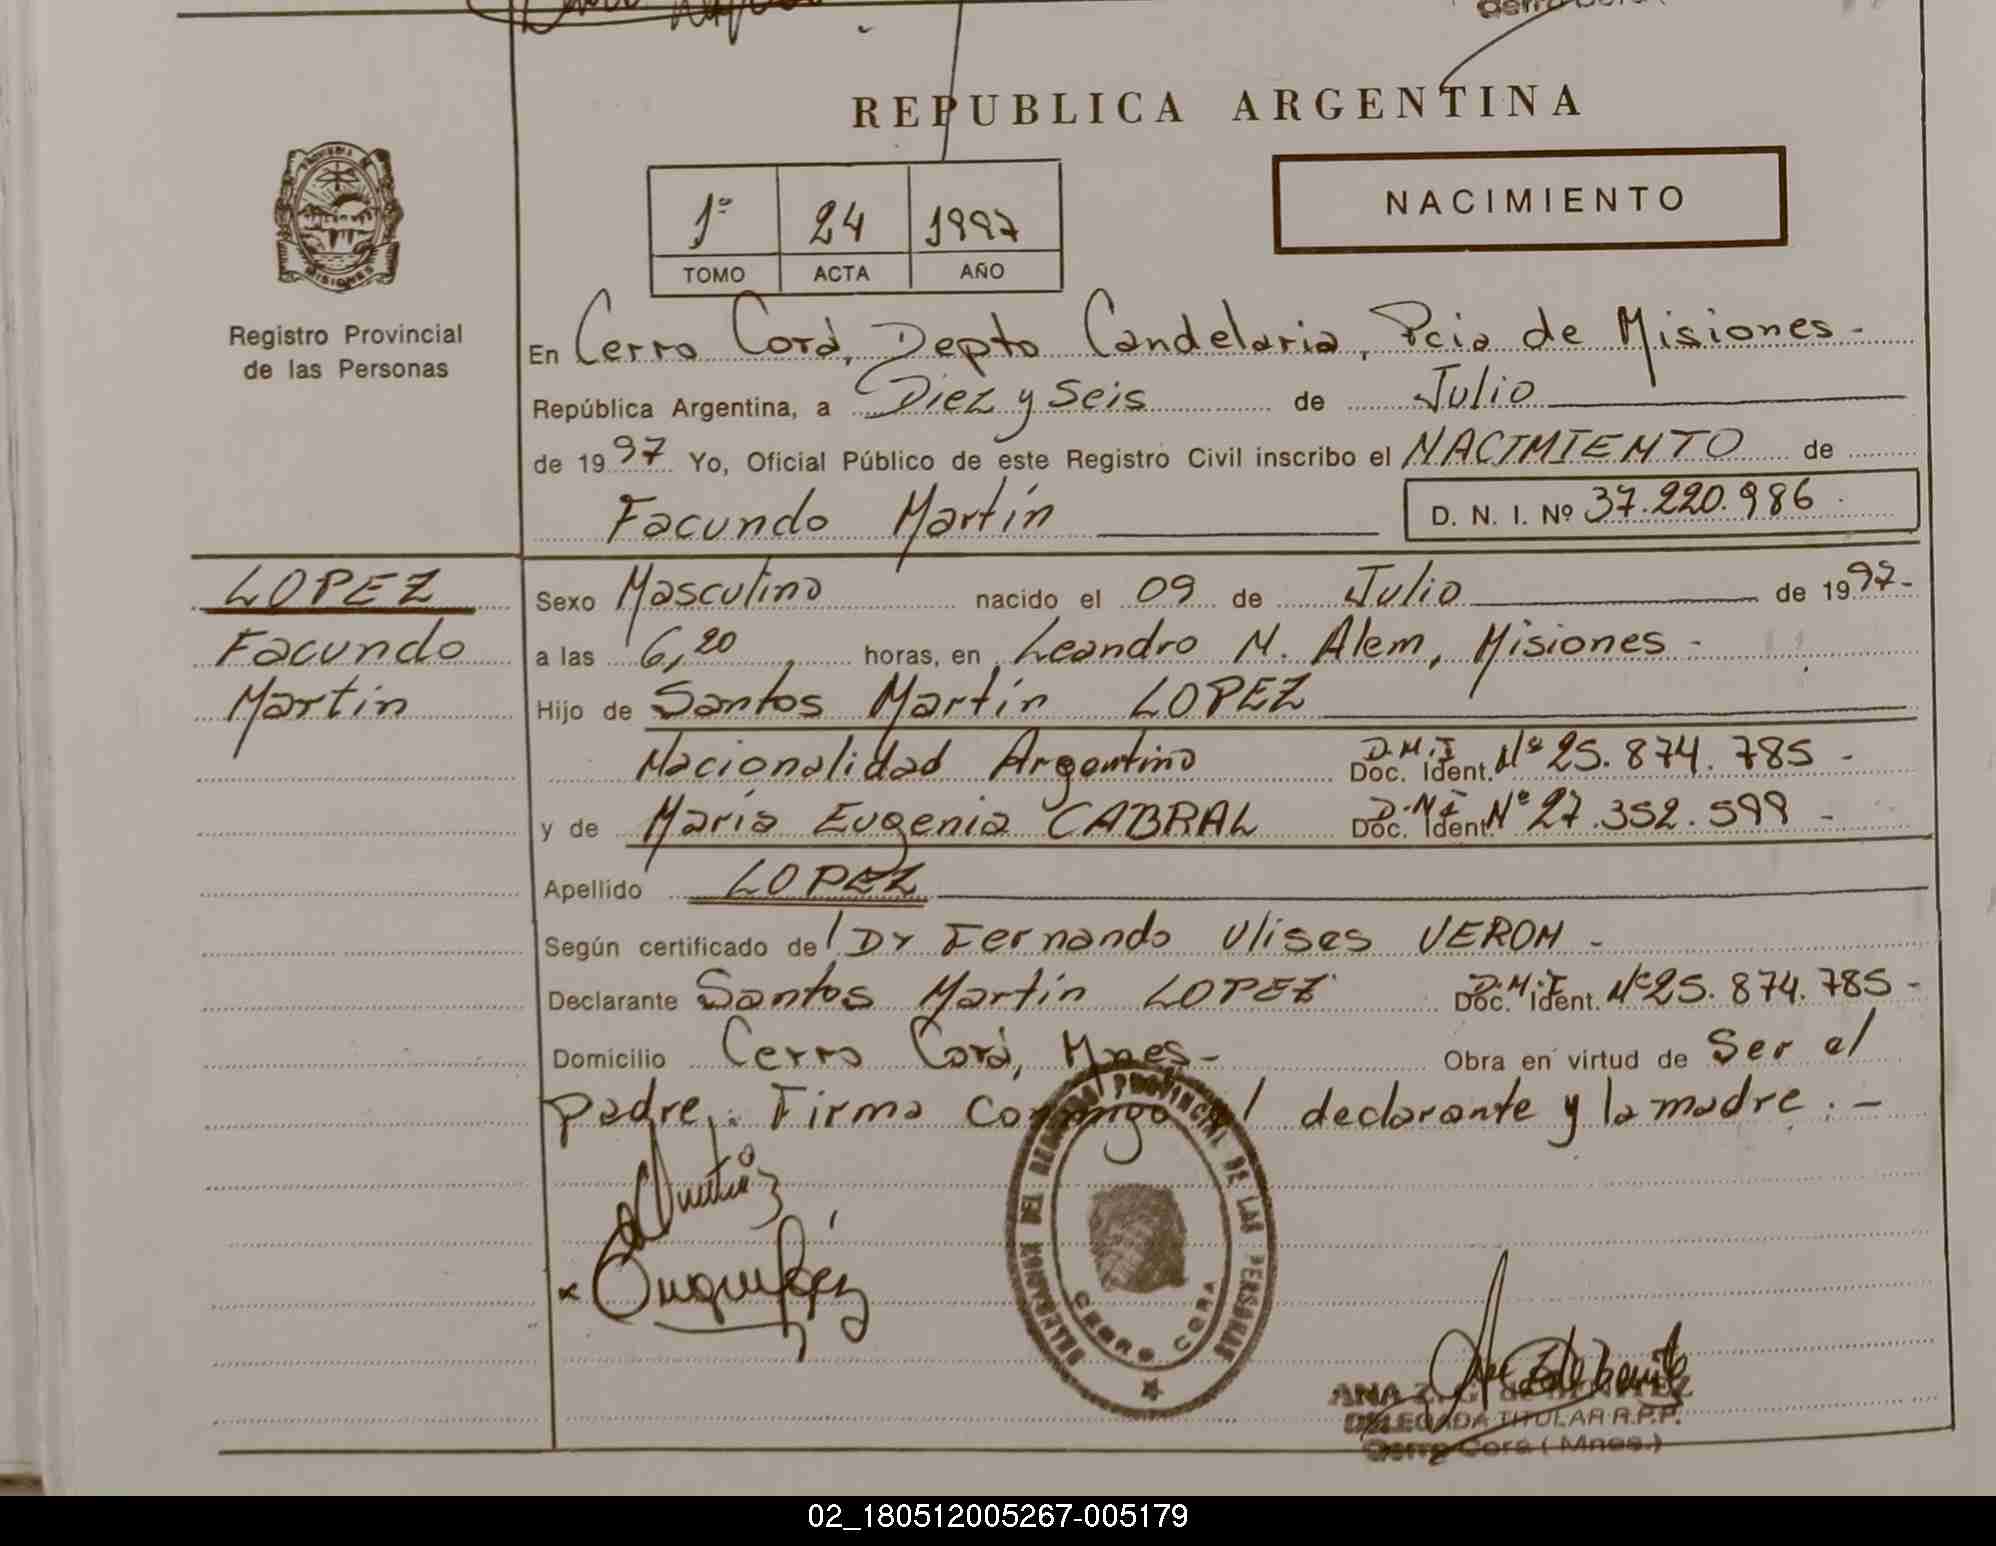 REPUBLICA ARGENTINA
NACIMIENTO
1º 24 1997
TOMO ACTA AÑO
Registro Provincial
de las Personas
En Cerro Corá, Depto Candelaria, Pcia de Misiones -
República Argentina, a Diez y Seis de Julio
de 1997 Yo, Oficial Público de este Registro Civil inscribo el NACIMIENTO de
Facundo Martín D. N. I. Nº 37.220.986
LOPEZ
Facundo
Martin
Sexo Masculino nacido el 09 de Julio de 1997-
a las 6,20 horas, en Leandro N. Alem, Misiones -
Hijo de Santos Martín LOPEZ
Nacionalidad Argentino Doc. Ident. D.N.I Nº 25.874.785 -
y de María Eugenia CABRAL Doc. Ident. D.N.I Nº 27.352.599 -
Apellido LOPEZ
Según certificado de Dr Fernando Ulises VERON -
Declarante Santos Martín LOPEZ Doc. Ident. D.N.I Nº 25.874.785 -
Domicilio Cerro Corá, Mnes - Obra en virtud de Ser el
padre. Firma conmigo el declarante y la madre. -
DELEGACION DEL REGISTRO PROVINCIAL DE LAS PERSONAS
CERRO CORA
ANA Z. G. de BENITEZ
DELEGADA TITULAR R.P.P.
Cerro Corá (Mnes.)
02_180512005267-005179